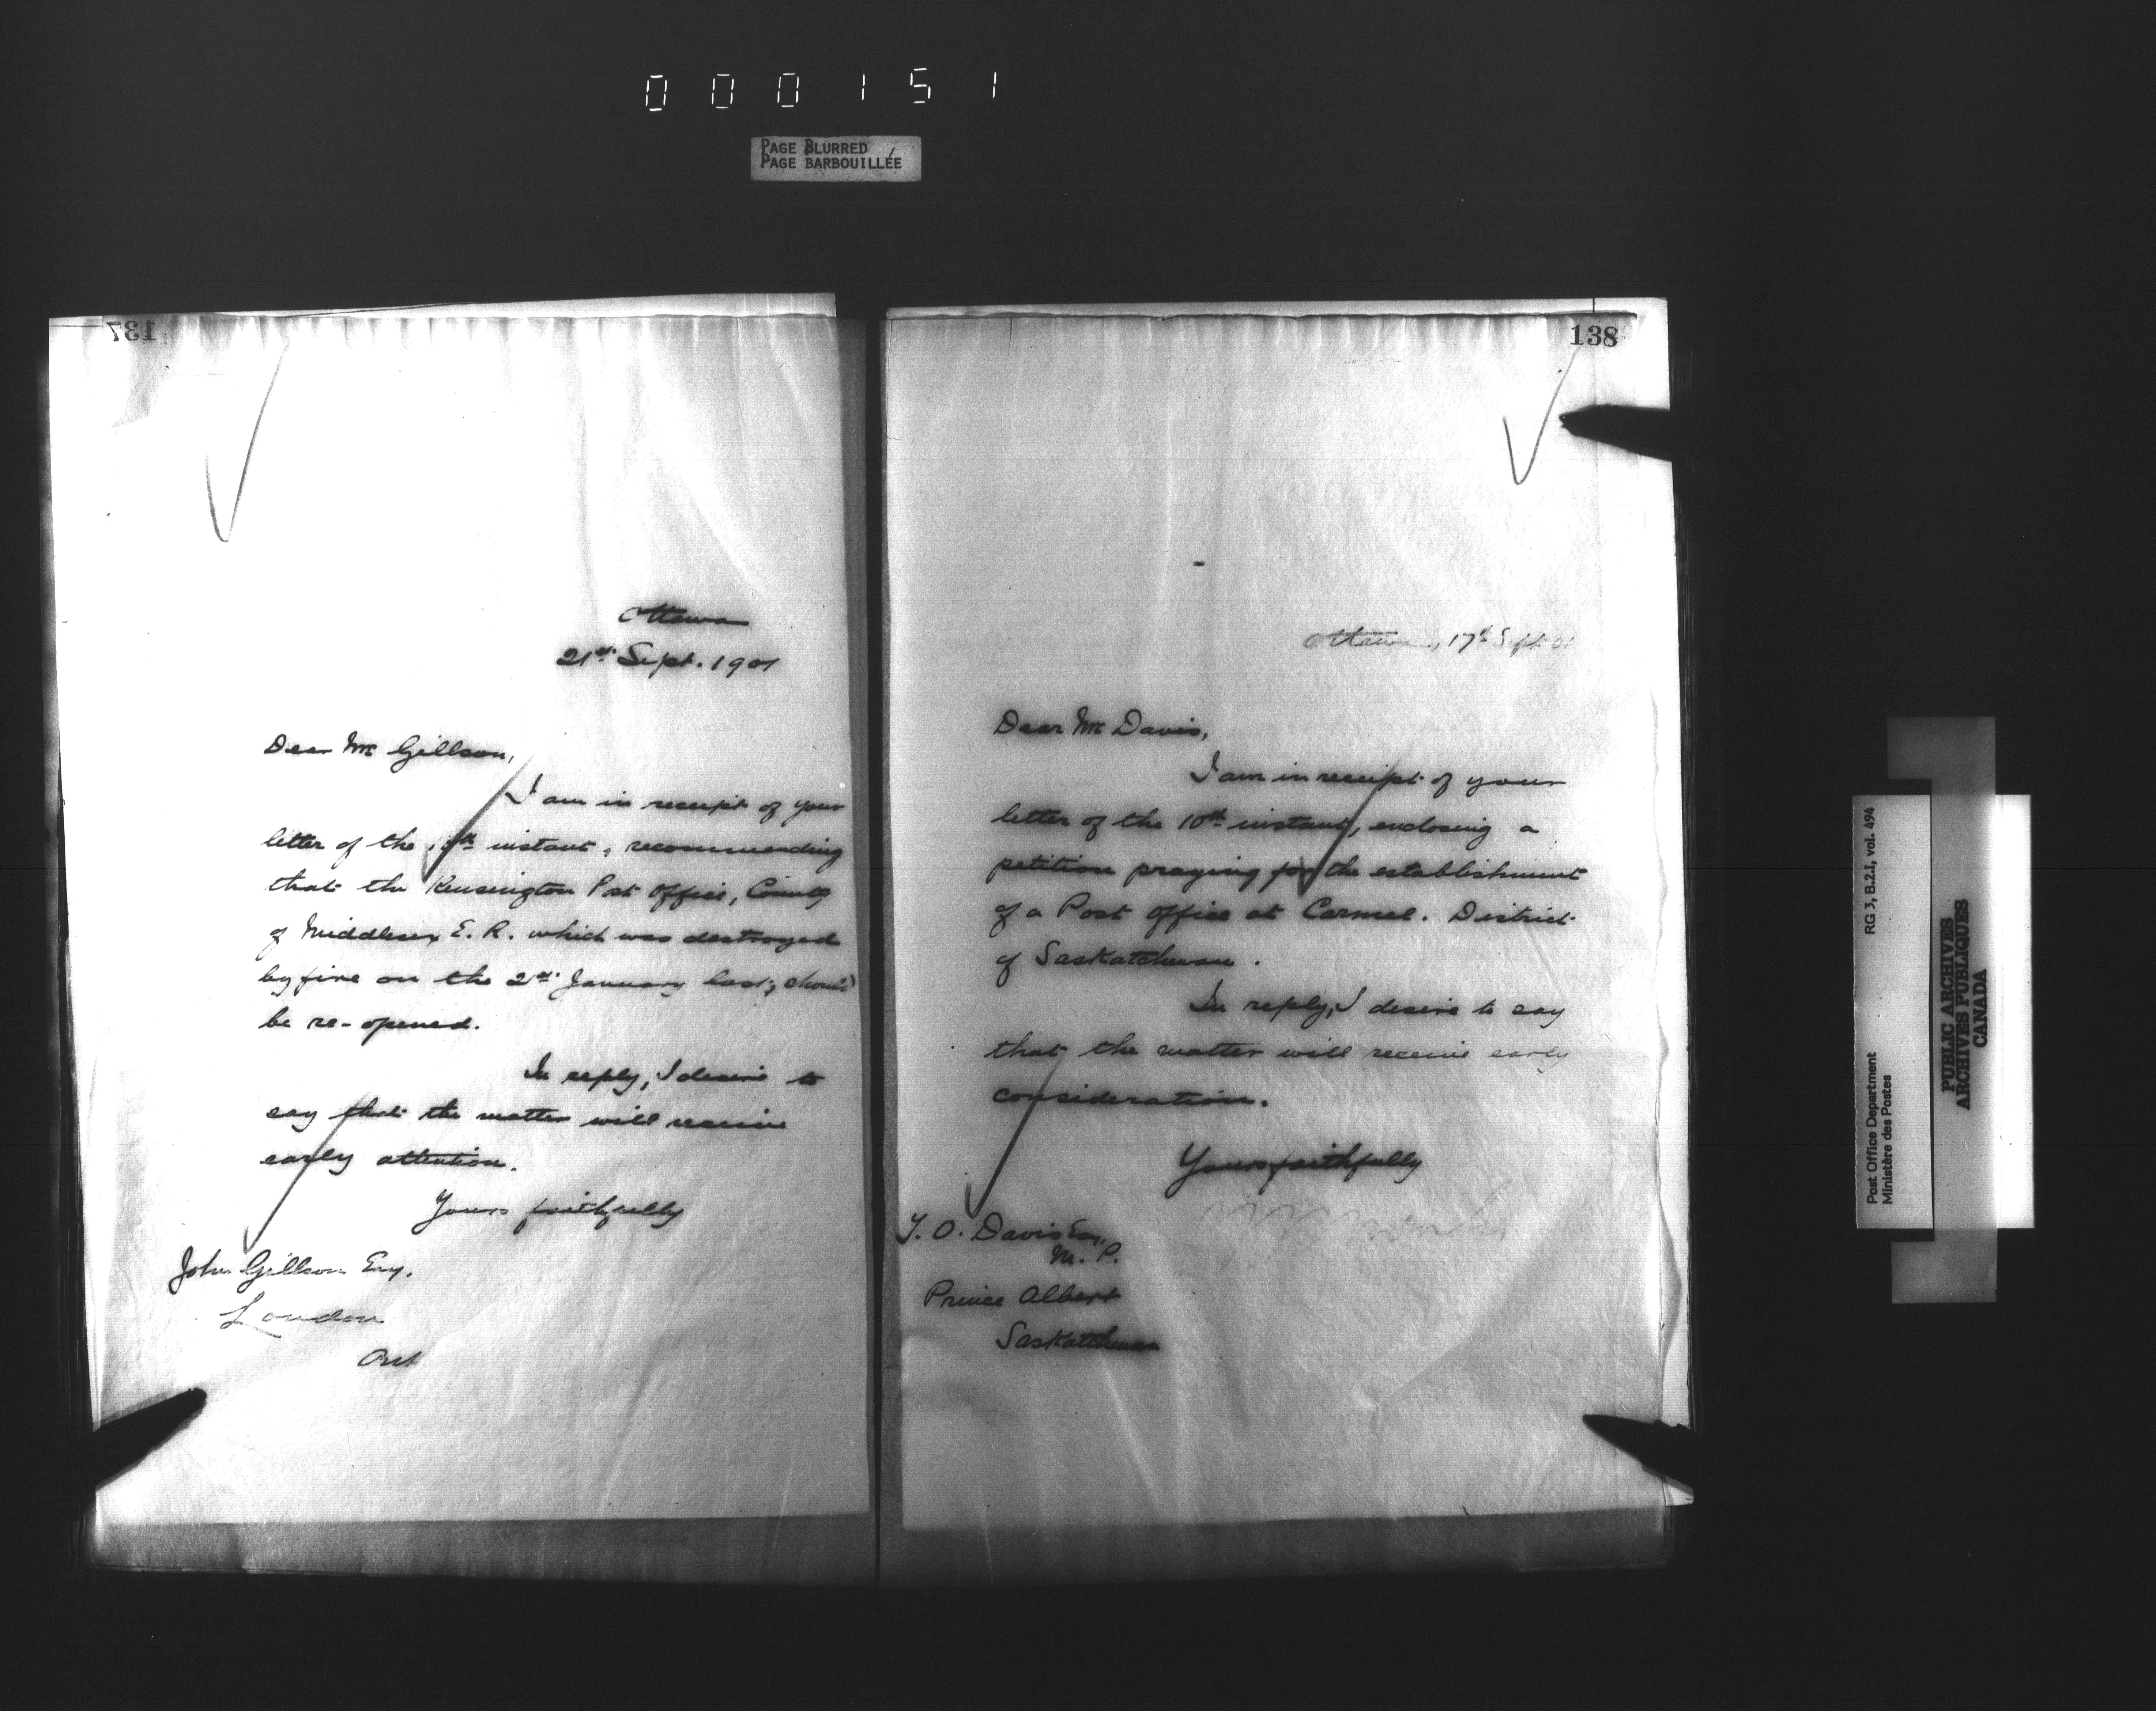 000151
PAGE BLURRED
PAGE BARBOUILLÉE
137
Ottawa
21st Sept. 1901
Dear Mr Gillson,
I am in receipt of your
letter of the instant, recommending
that the Kensington Post Office, County
of Middlesex E. R. which was destroyed
by fire on the 2nd January last, should
be re-opened.
In reply, I desire to
say that the matter will receive
early attention.
Yours faithfully
John Gillson Esq.
London
Ont
138
Ottawa, 17th Sept. 01
Dear Mr Davis,
I am in receipt of your
letter of the 10th instant, enclosing a
petition praying for the establishment
of a Post Office at Carmel. District
of Saskatchewan.
In reply, I desire to say
that the matter will receive early
consideration.
Yours faithfully
T. O. Davis Esq.
M. P.
Prince Albert
Saskatchewan
Post Office Department RG 3, B.2.1, vol. 494
Ministère des Postes
PUBLIC ARCHIVES
ARCHIVES PUBLIQUES
CANADA